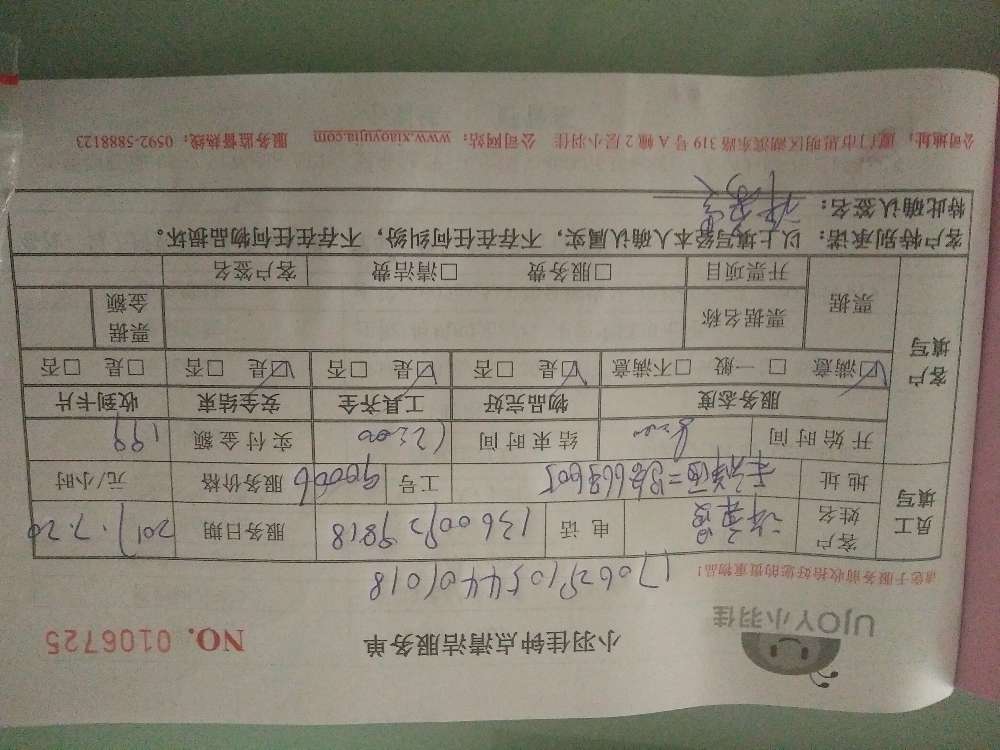 UJOY小羽佳
小羽佳钟点清洁服务单
NO. 0106725
17062910544401018
请您于服务前收拾好您的贵重物品!
员工填写
客户姓名 电话 13600939818 服务日期 2017.7.20
地址 工号 90006 服务价格 元/小时
开始时间 8:00 结束时间 12:00 实付金额 199
客户填写
服务态度 物品完好 工具齐全 安全结束 收到卡片
☑满意 □一般 □不满意 ☑是 □否 ☑是 □否 ☑是 □否 □是 □否
票据 票据名称 票据金额
开票项目 □服务费 □清洁费 客户签名
客户特别承诺:以上填写经本人确认属实,不存在任何纠纷,不存在任何物品损坏。
特此确认签名:
公司地址:厦门市思明区湖滨东路 319 号 A 幢 2 层小羽佳 公司网站:www.xiaoyujia.com 服务监督热线:0592-5888123